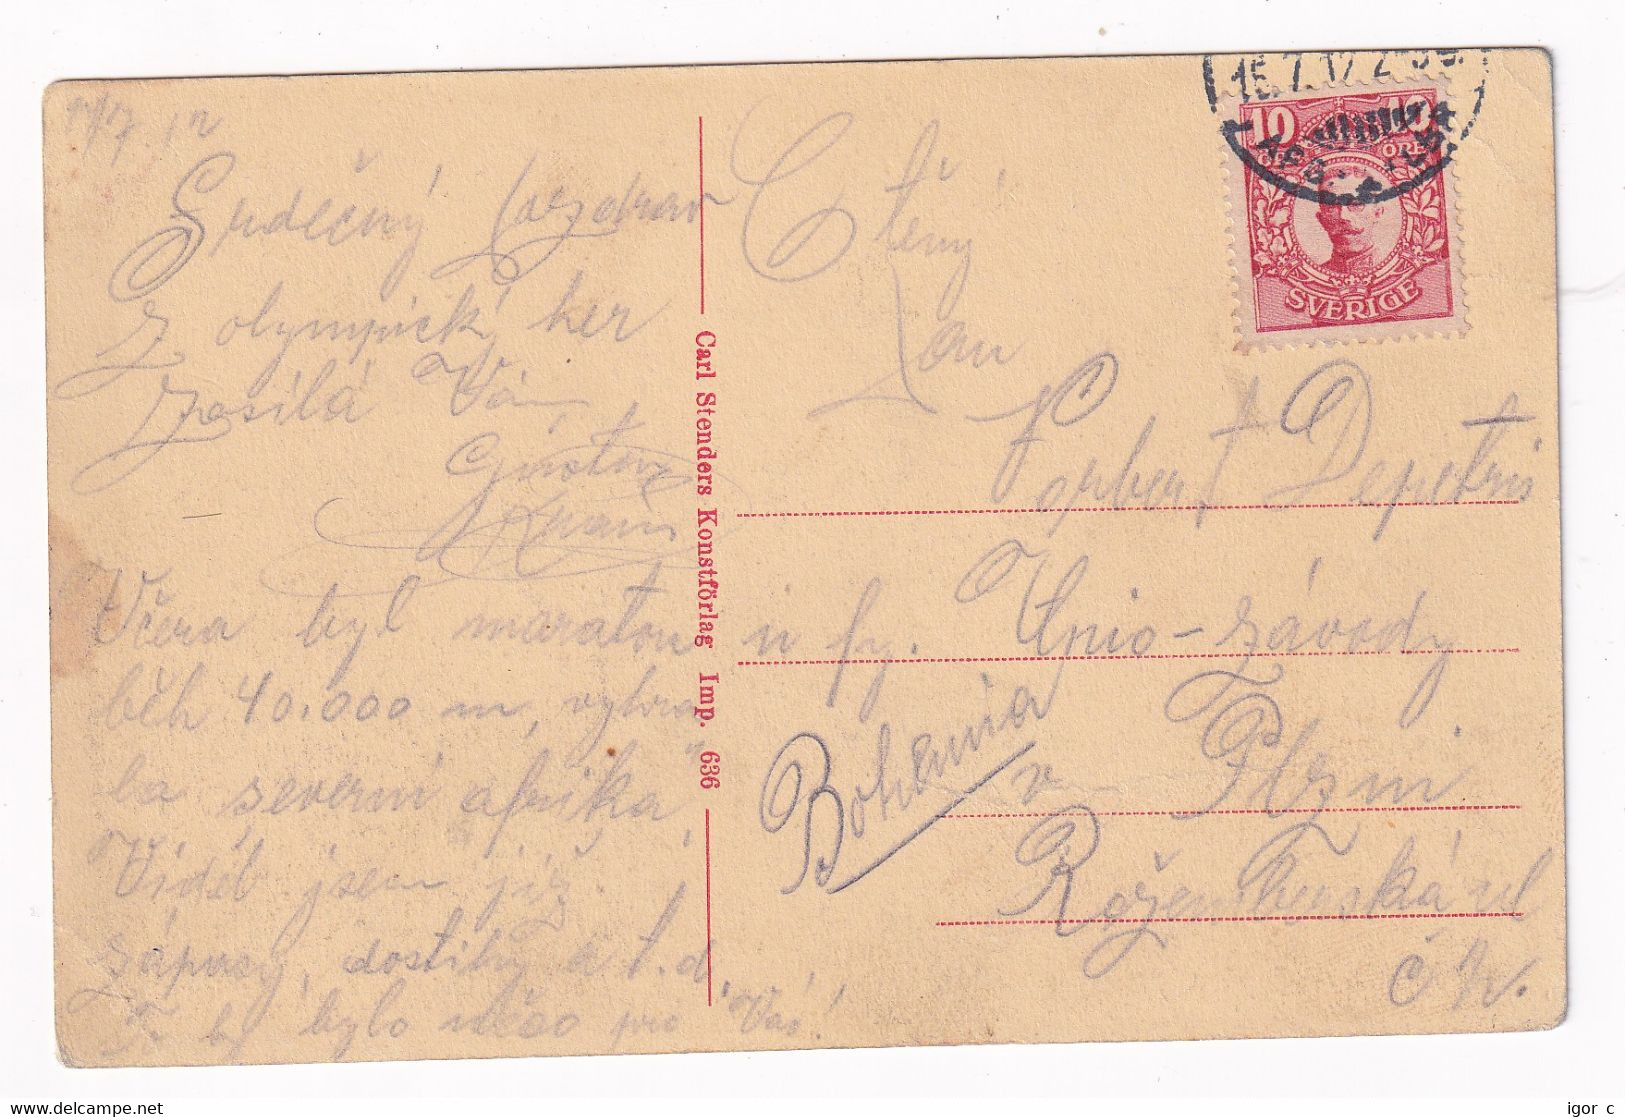 15/7 12
Srdečný pozdrav
z olympick her
zasílá Vám
Gustav
Včera byl maraton
běh 40.000 m, vyhrá
la severní afrika,
Viděl jsem již
zápasy, dostihy a t. d.
To by bylo něco pro Vás!
Carl Stenders Konstförlag Imp. 636
15.7.12
10 10
ÖRE
SVERIGE
Ctěný
Pan
Norbert Depetris
u fy. Unio-závody
v Plzni
Bohemia
Roženthenská ul
č
igor c